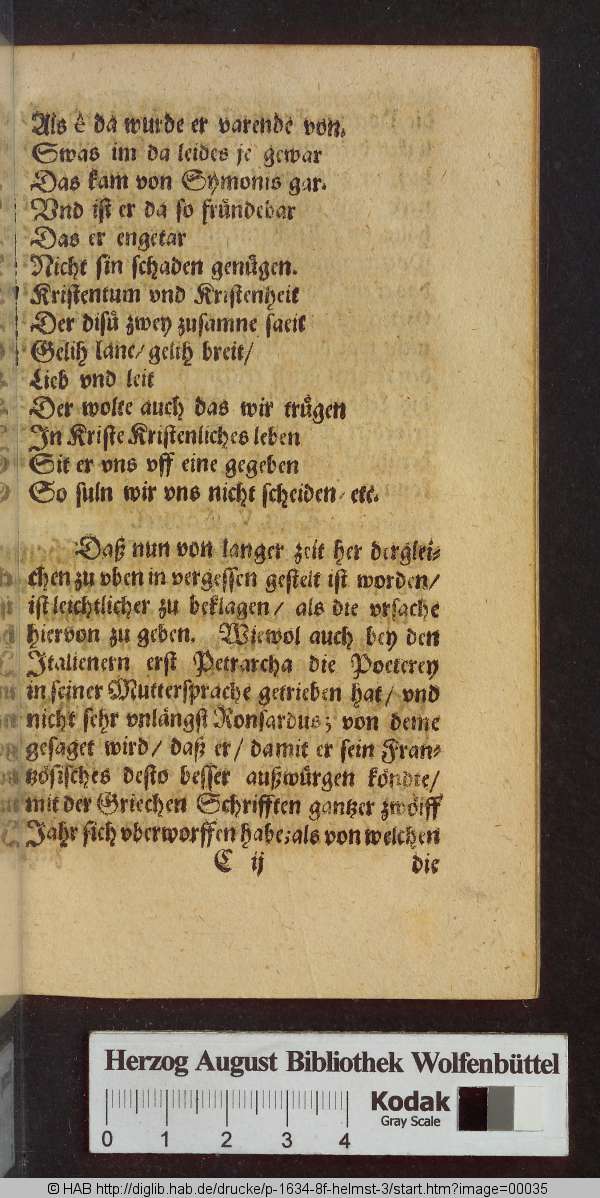 Als ê da wurde er varende von.
Swas im da leides je gewar
Das kam von Symonis gar.
Vnd ist er da so fründebar
Das er engetar
Nicht sin schaden genügen.
Kristentum vnd Kristenheit
Der disü zwey zusamne sneit
Gelih lanc/ gelih breit/
Lieb vnd leit
Der wolte auch das wir trügen
In Kriste Kristenliches leben
Sit er vns vff eine gegeben
So suln wir vns nicht scheiden/ etc.
Daß nun von langer zeit her derglei-
chen zu vben in vergessen gestelt ist worden/
ist leichtlicher zu beklagen/ als die vrsache
hiervon zu geben. Wiewol auch bey den
Italienern erst Petrarcha die Poeterey
in seiner Muttersprache getrieben hat/ vnd
nicht sehr vnlängst Ronsardus; von deme
gesaget wird/ daß er/ damit er sein Fran-
tzösisches desto besser außwürgen köndte/
mit der Griechen Schrifften gantzer zwölff
Jahr sich vberworffen habe; als von welchen
C ij die
Herzog August Bibliothek Wolfenbüttel
Kodak
Gray Scale
0 1 2 3 4
© HAB http://diglib.hab.de/drucke/p-1634-8f-helmst-3/start.htm?image=00035